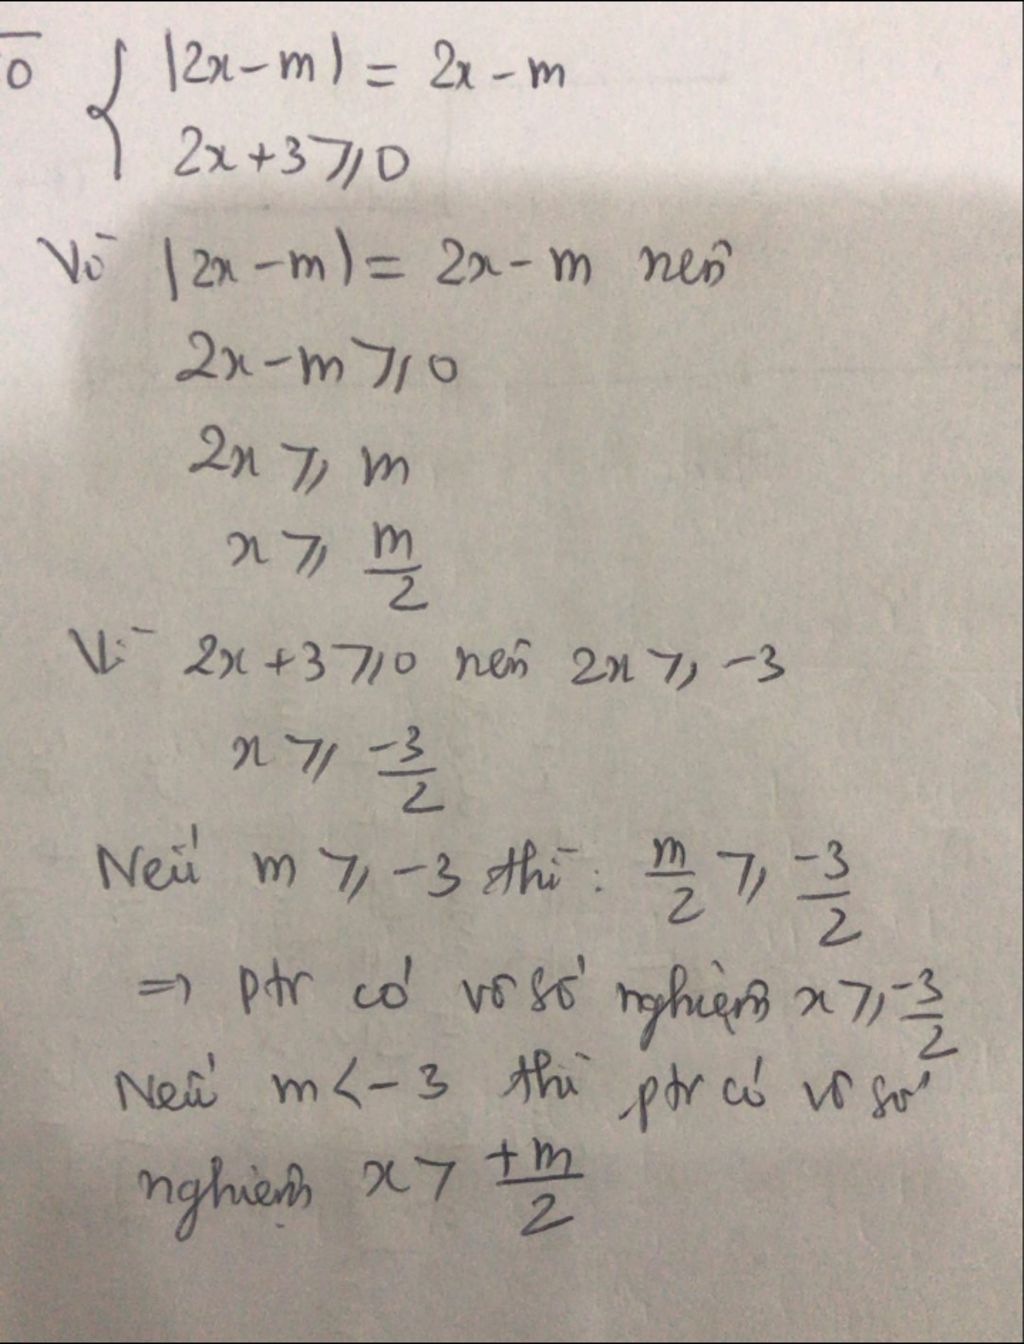 0 { |2x - m| = 2x - m
2x + 3 ⩾ 0
Vì |2x - m| = 2x - m nên
2x - m ⩾ 0
2x ⩾ m
x ⩾ m/2
Vì 2x + 3 ⩾ 0 nên 2x ⩾ -3
x ⩾ -3/2
Nếu m ⩾ -3 thì : m/2 ⩾ -3/2
=> ptr có vô số nghiệm x ⩾ -3/2
Nếu m < -3 thì ptr có vô số
nghiệm x > +m/2